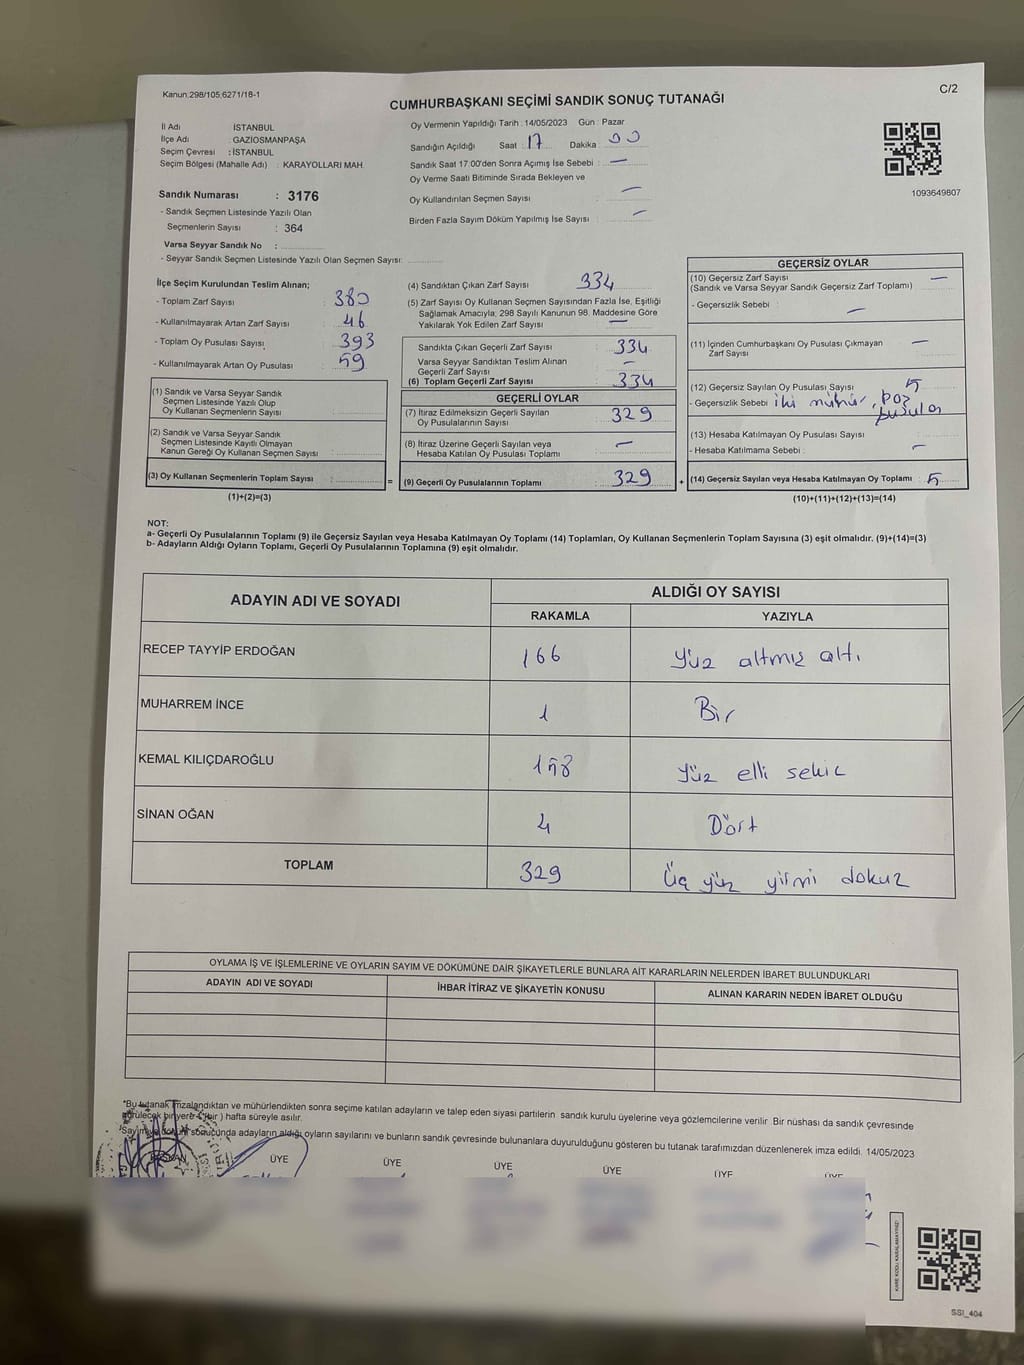 Kanun:298/105;6271/18-1
C/2
CUMHURBAŞKANI SEÇİMİ SANDIK SONUÇ TUTANAĞI
İl Adı : İSTANBUL
İlçe Adı : GAZİOSMANPAŞA
Seçim Çevresi : İSTANBUL
Seçim Bölgesi (Mahalle Adı) : KARAYOLLARI MAH.
Sandık Numarası : 3176
- Sandık Seçmen Listesinde Yazılı Olan
Seçmenlerin Sayısı : 364
Varsa Seyyar Sandık No :
- Seyyar Sandık Seçmen Listesinde Yazılı Olan Seçmen Sayısı:
Oy Vermenin Yapıldığı Tarih : 14/05/2023 Gün : Pazar
Sandığın Açıldığı Saat : 17 Dakika : 00
Sandık Saat 17.00'den Sonra Açımış İse Sebebi : —
Oy Verme Saati Bitiminde Sırada Bekleyen ve
Oy Kullandırılan Seçmen Sayısı : —
Birden Fazla Sayım Döküm Yapılmış İse Sayısı : —
1093649807
İlçe Seçim Kurulundan Teslim Alınan;
- Toplam Zarf Sayısı : 380
- Kullanılmayarak Artan Zarf Sayısı : 46
- Toplam Oy Pusulası Sayısı : 393
- Kullanılmayarak Artan Oy Pusulası : 59
(1) Sandık ve Varsa Seyyar Sandık
Seçmen Listesinde Yazılı Olup
Oy Kullanan Seçmenlerin Sayısı :
(2) Sandık ve Varsa Seyyar Sandık
Seçmen Listesinde Kayıtlı Olmayan
Kanun Gereği Oy Kullanan Seçmen Sayısı :
(3) Oy Kullanan Seçmenlerin Toplam Sayısı :
(1)+(2)=(3)
=
(4) Sandıktan Çıkan Zarf Sayısı : 334
(5) Zarf Sayısı Oy Kullanan Seçmen Sayısından Fazla İse, Eşitliği
Sağlamak Amacıyla; 298 Sayılı Kanunun 98. Maddesine Göre
Yakılarak Yok Edilen Zarf Sayısı : —
Sandıkta Çıkan Geçerli Zarf Sayısı : 334
Varsa Seyyar Sandıktan Teslim Alınan
Geçerli Zarf Sayısı : —
(6) Toplam Geçerli Zarf Sayısı : 334
GEÇERLİ OYLAR
(7) İtiraz Edilmeksizin Geçerli Sayılan
Oy Pusulalarının Sayısı : 329
(8) İtiraz Üzerine Geçerli Sayılan veya
Hesaba Katılan Oy Pusulası Toplamı : —
(9) Geçerli Oy Pusulalarının Toplamı : 329
+
GEÇERSİZ OYLAR
(10) Geçersiz Zarf Sayısı : —
(Sandık ve Varsa Seyyar Sandık Geçersiz Zarf Toplamı)
- Geçersizlik Sebebi : —
(11) İçinden Cumhurbaşkanı Oy Pusulası Çıkmayan
Zarf Sayısı : —
(12) Geçersiz Sayılan Oy Pusulası Sayısı : 5
- Geçersizlik Sebebi : iki mühür, boş
pusula
(13) Hesaba Katılmayan Oy Pusulası Sayısı
- Hesaba Katılmama Sebebi : —
(14) Geçersiz Sayılan veya Hesaba Katılmayan Oy Toplamı : 5
(10)+(11)+(12)+(13)=(14)
NOT:
a- Geçerli Oy Pusulalarının Toplamı (9) ile Geçersiz Sayılan veya Hesaba Katılmayan Oy Toplamı (14) Toplamları, Oy Kullanan Seçmenlerin Toplam Sayısına (3) eşit olmalıdır. (9)+(14)=(3)
b- Adayların Aldığı Oyların Toplamı, Geçerli Oy Pusulalarının Toplamına (9) eşit olmalıdır.
ADAYIN ADI VE SOYADI
ALDIĞI OY SAYISI
RAKAMLA YAZIYLA
RECEP TAYYİP ERDOĞAN 166 Yüz altmış altı
MUHARREM İNCE 1 Bir
KEMAL KILIÇDAROĞLU 158 Yüz elli sekiz
SİNAN OĞAN 4 Dört
TOPLAM 329 Üç yüz yirmi dokuz
OYLAMA İŞ VE İŞLEMLERİNE VE OYLARIN SAYIM VE DÖKÜMÜNE DAİR ŞİKAYETLERLE BUNLARA AİT KARARLARIN NELERDEN İBARET BULUNDUKLARI
ADAYIN ADI VE SOYADI İHBAR İTİRAZ VE ŞİKAYETİN KONUSU ALINAN KARARIN NEDEN İBARET OLDUĞU
*Bu tutanak imzalandıktan ve mühürlendikten sonra seçime katılan adayların ve talep eden siyasi partilerin sandık kurulu üyelerine veya gözlemcilerine verilir. Bir nüshası da sandık çevresinde
görülecek bir yere 1 (bir) hafta süreyle asılır.
*Sayım ve döküm sonucunda adayların aldığı oyların sayılarını ve bunların sandık çevresinde bulunanlara duyurulduğunu gösteren bu tutanak tarafımızdan düzenlenerek imza edildi. 14/05/2023
BAŞKAN ÜYE ÜYE ÜYE ÜYE ÜYE ÜYE
SSI_404